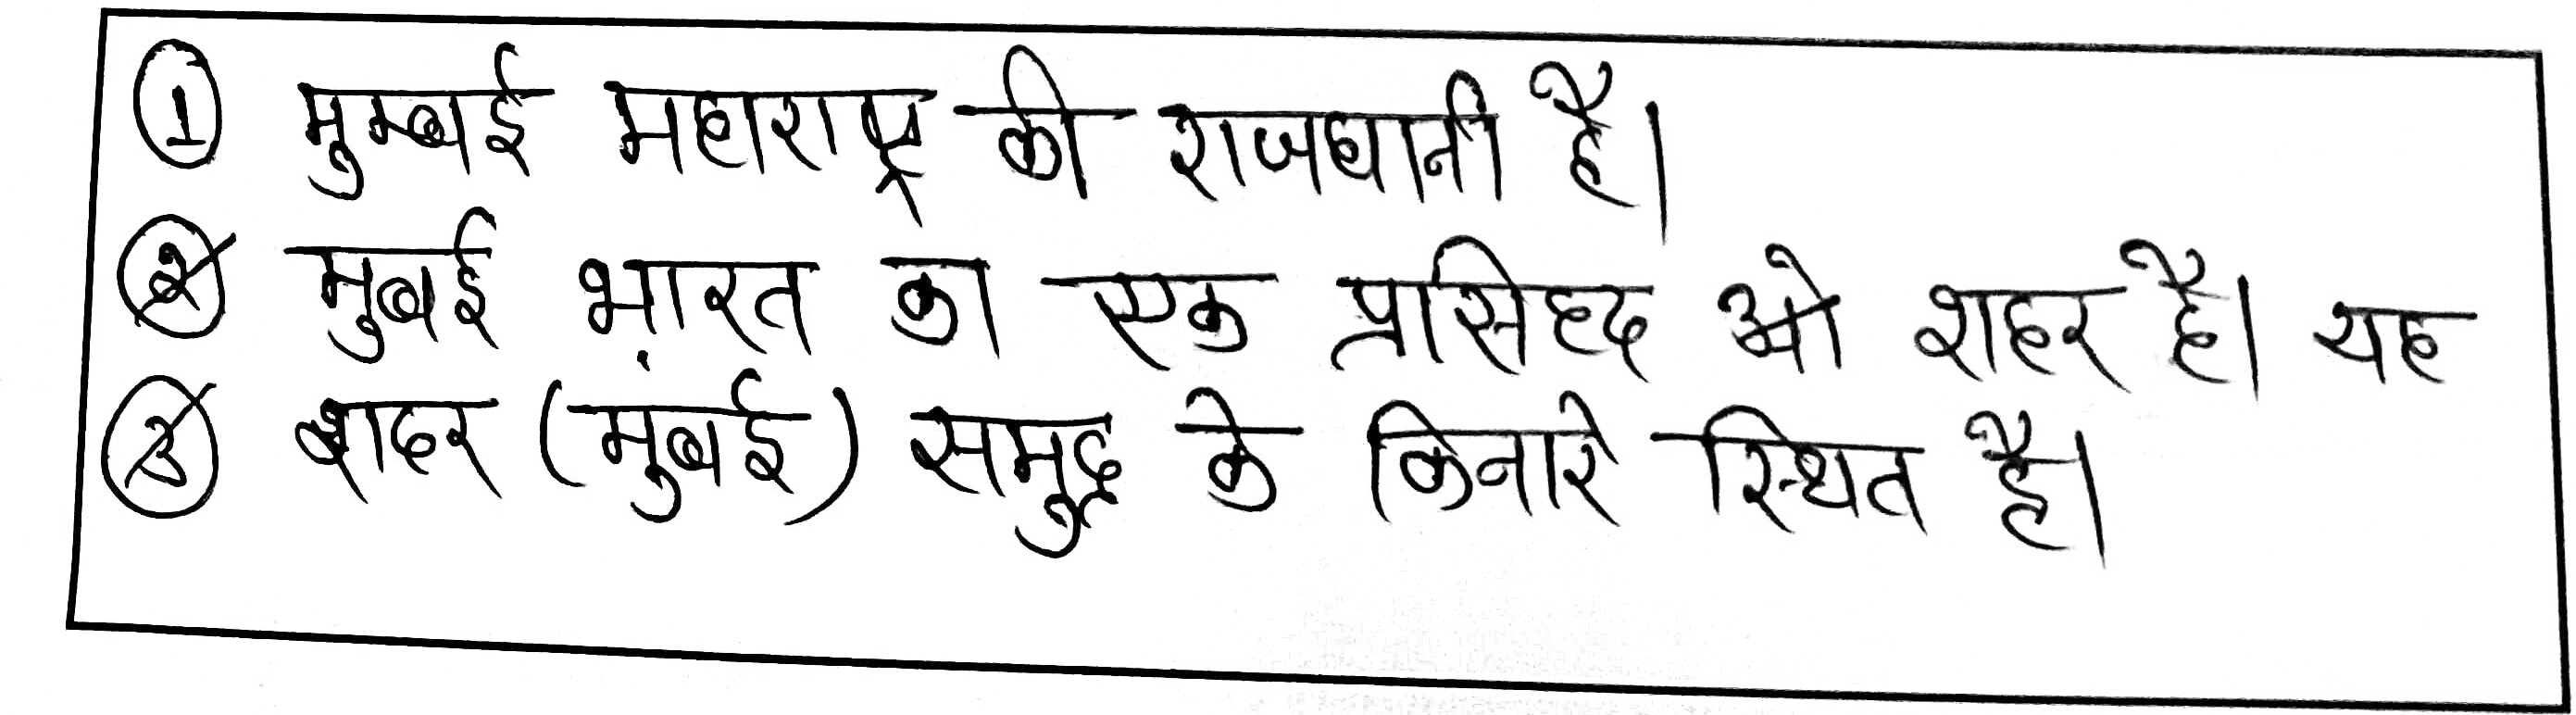 ① मुम्बई महाराष्ट्र की राजधानी है।
② मुबई भारत का एक प्रसिद्ध शहर है। यह
③ शहर (मुंबई) समुद्र के किनारे स्थित है।